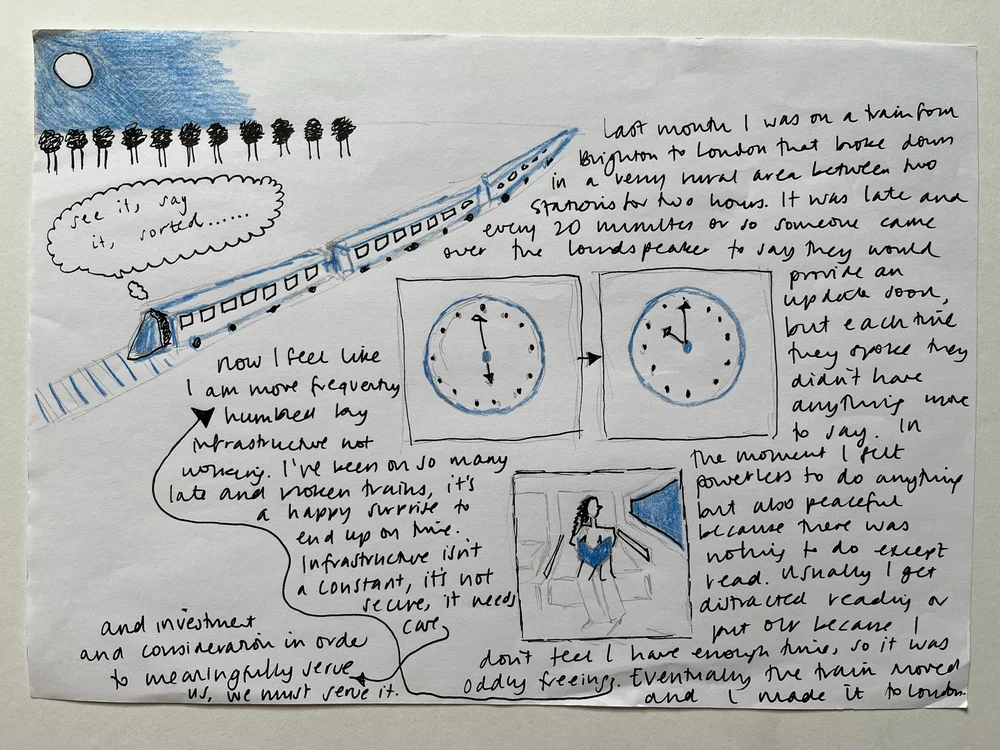 see it, say
it, sorted......
Last month I was on a train from
Brighton to London that broke down
in a very rural area between two
stations for two hours. It was late and
every 20 minutes or so someone came
over the loundspeaker to say they would
provide an
update soon,
but each time
they spoke they
didn't have
anything more
to say. In
the moment I felt
powerless to do anything
but also peaceful
because there was
nothing to do except
read. Usually I get
distracted reading or
put off because I
don't feel I have enough time, so it was
oddly freeing. Eventually the train moved
and I made it to London.
now I feel like
I am more frequently
humbled by
infrastructure not
working. I've been on so many
late and broken trains, it's
a happy surprise to
end up on time.
Infrastructure isn't
a constant, it's not
secure, it needs
care
and investment
and consideration in order
to meaningfully serve
us, we must serve it.